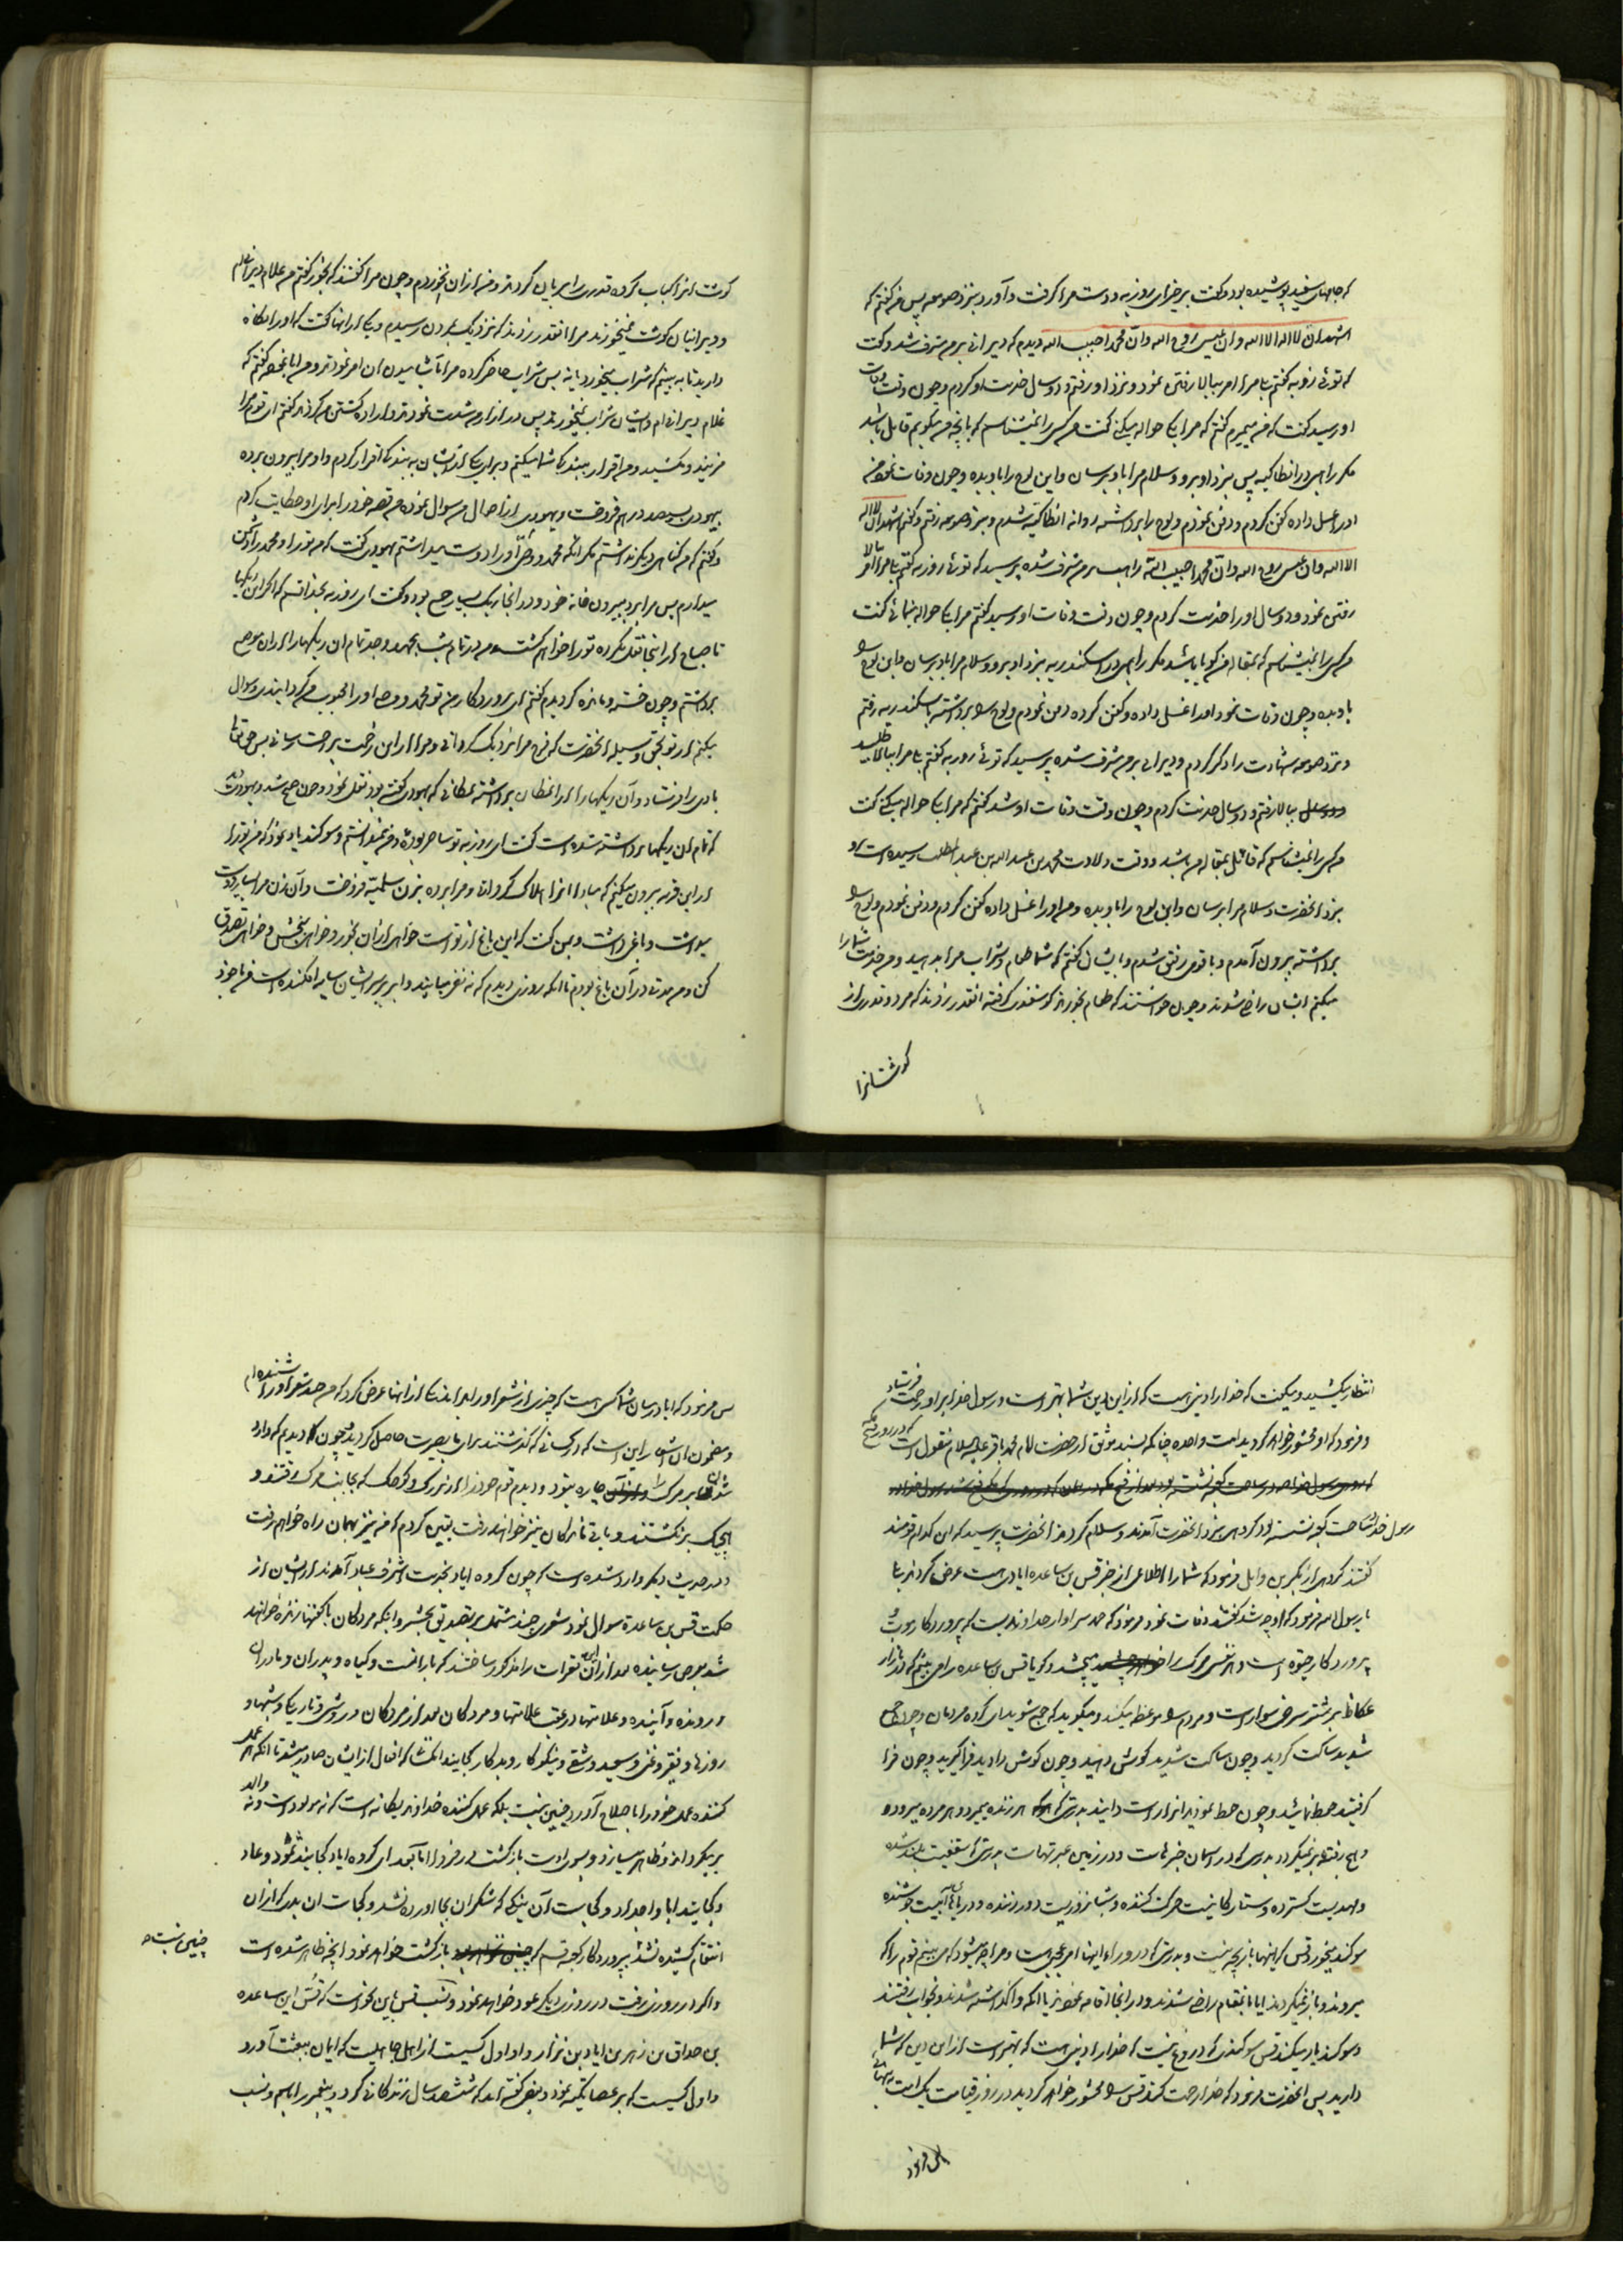 که جامهای سفید پوشیده بود و گفت برخیز ای روزبه و دست مرا گرفت و آورد بنزد صومعه پس من گفتم که
اشهد ان لا اله الا الله و ان عیسی روح الله و ان محمدا حبیب الله دیدم که دیرانی بر من مشرف شد و گفت
که توئی روزبه گفتم بلی مرا امر ببالا رفتن نمود و نزد او رفتم و دو سال خدمت او کردم و چون وقت وفات
او رسید گفت که من میمیرم گفتم که مرا بکه حواله میکنی گفت من کسی را نمیشناسم که بانچه من میگویم قایل باشد
مگر راهبی در انطاکیه پس بنزد او برو و سلام مرا باو برسان و این لوح را باو بده و چون وفات نمود من
او را غسل داده کفن کردم و دفن نمودم و لوح را برداشته روانه انطاکیه شدم و بنزد صومعه رفتم و گفتم اشهد ان لا اله
الا الله و ان عیسی روح الله و ان محمدا حبیب الله راهب بر من مشرف شده پرسید که توئی روزبه گفتم بلی مرا امر ببالا
رفتن نمود و دو سال او را خدمت کردم و چون وقت وفات او رسید گفتم مرا بکه حواله مینمائی گفت
من کسی را نمیشناسم که بمقاله من گویا باشد مگر راهبی در اسکندریه بنزد او برو و سلام مرا باو برسان و این لوح را
باو بده و چون وفات نمود او را غسل داده و کفن کرده دفن نمودم و لوح را برداشته باسکندریه رفتم
و نزد صومعه شهادت را ذکر کردم و دیرانی بر من مشرف شده پرسید که توئی روزبه گفتم بلی مرا ببالا طلبید
ببالا رفتم و دو سال خدمت کردم و چون وقت وفات او شد گفتم که مرا بکه حواله میکنی گفت
من کسی را نمیشناسم که قائل بمقاله من باشد و وقت ولادت محمد بن عبد الله بن عبد المطلب رسیده است
بنزد انحضرت و سلام مرا برسان و این لوح را باو بده و من او را غسل داده کفن کردم و دفن نمودم و لوح را
برداشته بیرون آمدم و با قومی رفیق شدم و بایشان گفتم که شما طعام و شراب مرا بدهید و من خدمت شما را
میکنم ایشان راضی شدند و چون خواستند که طعام بخورند گوسفندی گرفته انقدر زدند که مرد و قدری از
گوشتانرا
گوشت انرا کباب کرده قدری را بریان کردند و من از ان نخوردم و چون مرا گفتند که بخور گفتم من غلام دیرانیم
و دیرانیان گوشت نمیخورند مرا انقدر زدند که نزدیک بمردن رسیدم و یکی از انها گفت که او را نگاه
دارید تا به بینیم که شراب میخورد یا نه پس شراب حاضر کرده مرا بآشامیدن ان امر نمودند و من ابا نموده گفتم که
غلام دیرانی ام و ایشان شراب نمیخورند پس در ازار من شدت نمودند و اراده کشتن من کردند گفتم ای قوم مرا
مزنید و مکشید و من اقرار ببندگی شما میکنم و برای یکی از ایشان به بندگی اقرار کردم و او مرا بیرون برده
بیهودی بسیصد درهم فروخت و یهودی از احوال من سوال نموده من قصه خود را برای او حکایت کردم
و گفتم که من گناهی دیگر نداشتم مگر آنکه محمد و وصی او را دوست میداشتم یهودی گفت که من تو را و محمد را دشمن
میدارم پس مرا برد بیرون خانه خود و در انجا ریک بسیار جمع بود و گفت ای روزبه بخدا قسم که اگر این ریکها
تا صباح از اینجا نقل نکرده تو را خواهم کشت و من در تمام شب بجهد و جد تمام ان ریکها را از ان موضع
برداشتم و چون خسته و مانده گردیدم گفتم ای پروردگار من تو محمد و وصی او را محبوب من گردانیدی و سوال
میکنم از تو بحق و وسیله انحضرت که فرج مرا نزدیک گردانی و مرا از این زحمت براحت رسانی پس حق تعالی
بادی را فرستاد و آن ریکها را از انمکان برداشته بمکانی که یهودی گفته بود نقل نمود و چون صبح شد و یهودی دید
که تمام ان ریکها برداشته شده است گفت ای روزبه تو ساحر بودهٔ و من نمیدانستم و سوگند یاد نمود که من تو را
از این قریه بیرون میکنم که مبادا انرا هلاک گردانی و مرا برده بزن سلمیه فروخت و آن زن مرا بسیار دوست
میداشت و باغی داشت و بمن گفت که این باغ از تو است خواهی از ان بخور و خواهی ببخش و خواهی تصدق
کن و من مدتی در آن باغ بودم تا انکه روزی دیدم که نه نفر میایند و ابر بر سر ایشان سایه افکنده است من با خود
انتظار میکشید و میگفت که خدا را دینی هست که از این دین شما بهتر است و رسول خدا بر او رحمت فرستاد
و فرمود که او محشور خواهد گردید امت واحده چنانکه بسند موثق از حضرت امام محمد باقر علیه السلام منقول است که در روز فتح مکه
رسول خدا در ساحت کعبه نشسته بود گروهی بنزد انحضرت آمدند و سلام کردند انحضرت پرسید که این کدام قومند
گفتند گروهی از بکر بن وایل فرمود که شما را اطلاعی از خبر قس بن ساعده ایادی هست عرض کردند بلی
یا رسول الله فرمود که او چه شد گفتند وفات نمود فرمود که حمد سزاوار خداوندیست که پروردگار موت و
پروردگار حیوة است و هر نفس مرگ را میچشد و گویا قس بن ساعده را می بینم که در بازار
عکاظ بر شتر سرخی سوار است و مردم را موعظه میکند و میگوید که جمع شوید ای گروه مردمان و چون جمع
شدید ساکت گردید و چون ساکت شدید گوش دهید و چون گوش دادید فرا گیرید و چون فرا
گرفتید حفظ نمائید و چون حفظ نمودید براستی که هر زنده بمیرد و هر مرده میرود و
و هر رفته برنمیگردد بدرستی که در اسمان خبرهاست و در زمین عبرتهاست بدرستی که سقفیست بلند شده
و مهدیست گسترده و ستارگانیست حرکت کننده و شبانروزیست دور زننده و دریاها آبیست جوشنده
سوگند میخورد قس که اینها بازیچه نیست و بدرستی که در وراء اینها امر عجیبی است و مرا چه میشود که می بینم قوم را که
میروند و باز نمیگردند ایا بانمقام راضی شدند و در انجا اقامه نمودند یا انکه واگذاشته شدند و بخواب رفتند
و سوگند یاد میکند قس سوگندی که دروغ نیست که خدا را دینی هست که بهتر است از این دین که شما
دارید پس انحضرت فرمود که خدا رحمت کند قس را محشور خواهد گردید در روز قیامت یک امت به تنهائی
پس فرمود
پس فرمود که ایا در میان شما کسی هست که چیزی از شعر او را بداند یکی از انها عرض کرد که من چند شعر او را شنیده ام
و مضمون ان اشعار این است که در کسانی که گذشتند برای ما بصیرت حاصل گردید و چون دیدم که وارد
شوندگان بر مرگ را چاره نبود و دیدم قوم خود را از بزرگ و کوچک که بجانب مرگ رفتند و
هیچیک برنگشتند و باقی ماندگان نیز خواهند رفت یقین کردم که من نیز بهمان راه خواهم رفت
و در حدیث دیگر وارد شده است که چون گروه ایاد بخدمت اشرف عباد آمدند از ایشان از
حکمت قس بن ساعده سوال نمود شعری چند مشتمل بر تصدیق بحشر و اینکه مردگان با کفنها زنده خواهند
شد بعرض رسانیده بعد از ان این فقرات را مذکور ساختند که بارانست و گیاه و پدران و مادران
و رونده و آینده و علامتها در عقب علامتها و مردگان بعد از مردگان و روشنی و تاریکی و شبها و
روزها و فقیر و غنی و سعید و شقی و نیکوکار و بدکار کجایند انکسان که افعال از ایشان صادر میشد تا انکه هر عمل
کننده عمل خود را باصلاح آورد چنین نیست بلکه عمل کننده خداوند یکانه است که نه مولود است و نه والد
برمیگرداند و ظاهر میسازد و بسوی اوست بازگشت در فردا اما بعد ای گروه ایاد کجایند ثمود و عاد
و کجایند ابا و اجداد و کجاست آن نیکی که شکر ان بجا اورده نشد و کجاست ان بدی که از ان
انتقام کشیده نشد بپروردگار کعبه قسم که بازگشت خواهد نمود انچه ظاهر شده است
چنین نیست
و اگر در روزی رفت در روزی دیگر عود خواهد نمود و نسب قس باین نحو است که قس ابن ساعده
بن حداق بن زهر بن ایاد بن نزار و او اول کسیست از اهل جاهلیت که ایمان ببعثت آورد
و اول کسیست که بر عصا تکیه نمود و بعضی گفته اند که ششصد سال زندگانی کرد و پیغمبر را باسم و نسب